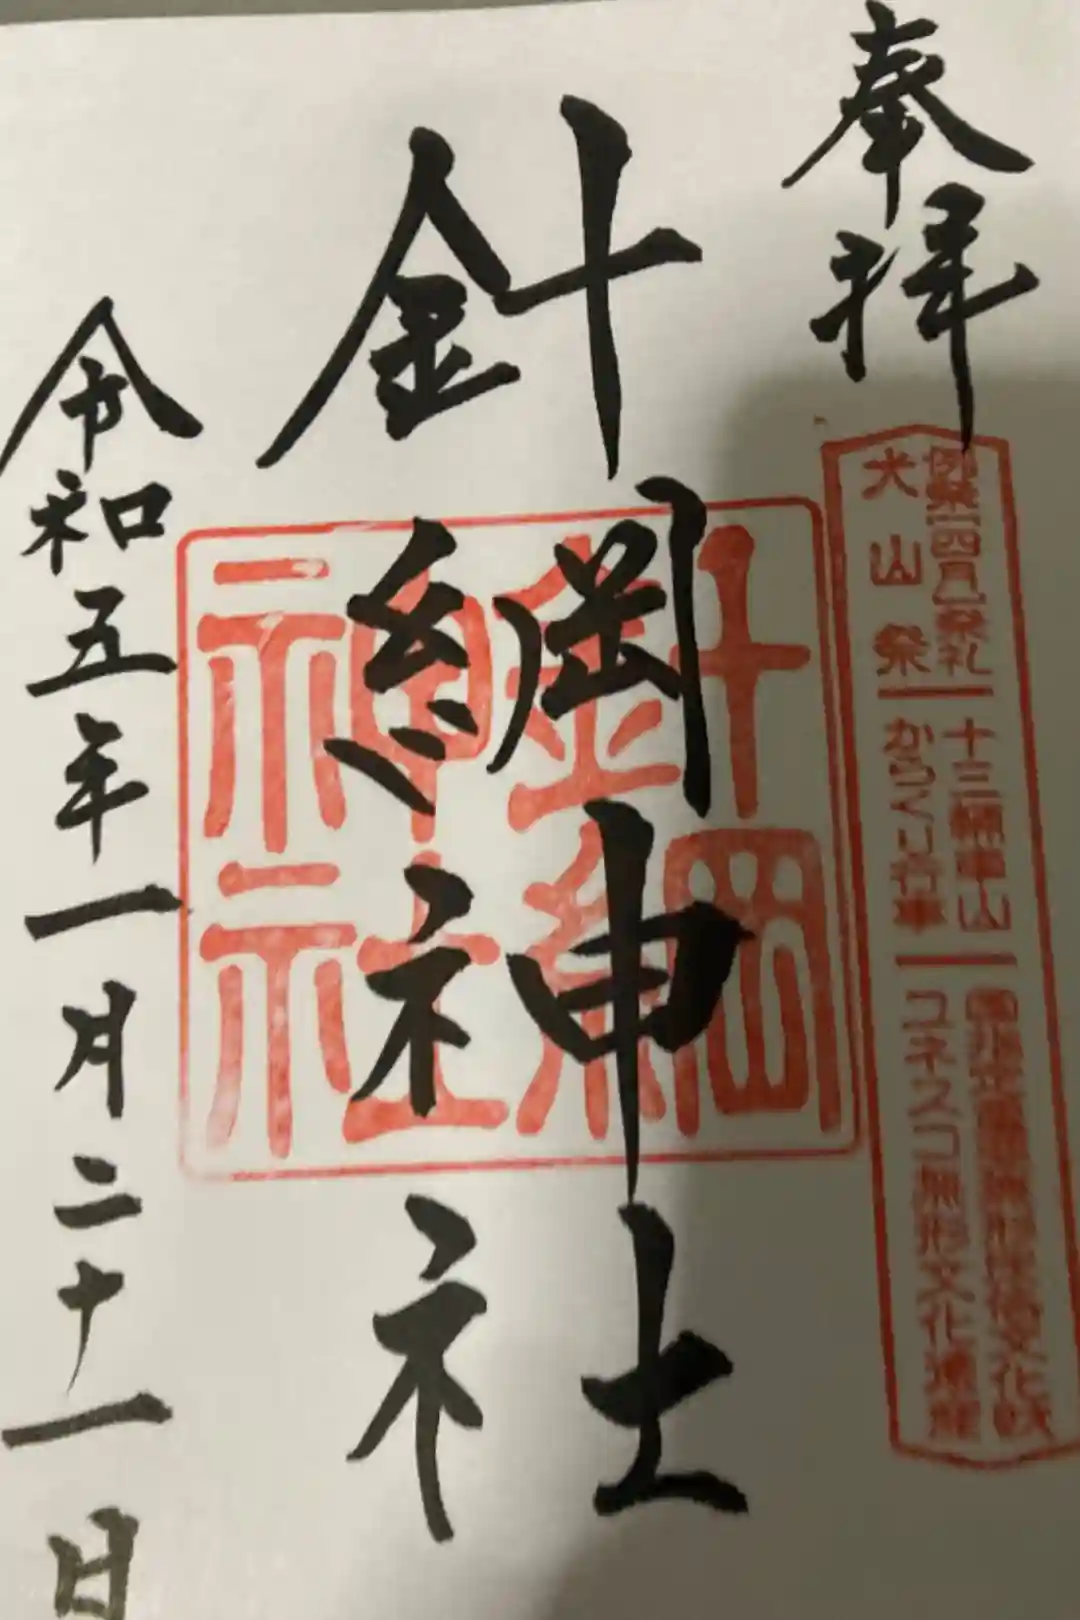 奉拝
例祭(四月)祭礼 十三輌車山 国指定重要無形民俗文化財
犬山祭 からくり行車 ユネスコ無形文化遺産
針綱神社
針綱
神社
令和五年一月二十一日